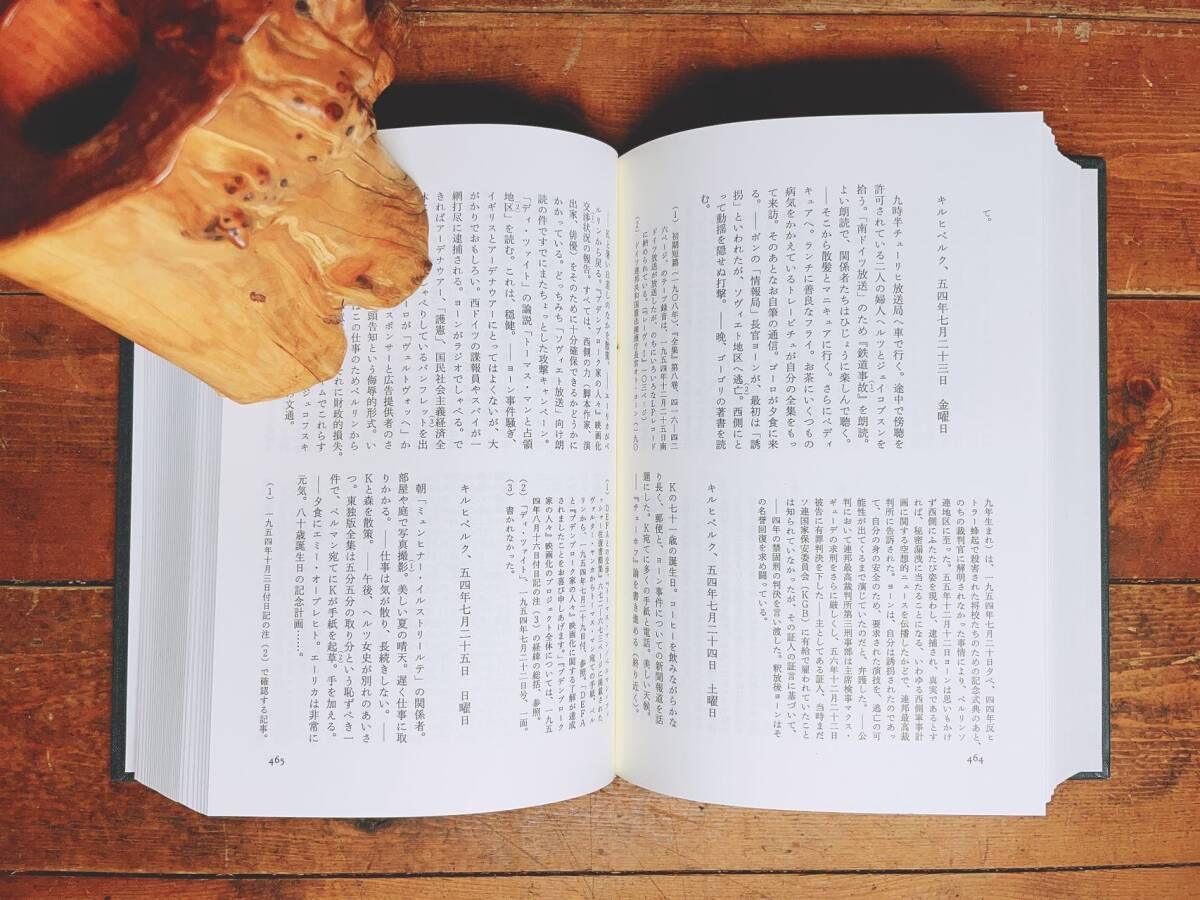 て。
キルヒベルク、五四年七月二十三日　金曜日
九時半チューリヒ放送局へ車で行く。途中で傍聴を
許可されている二人の婦人ヘルツとジェイコブスンを
拾う。「南ドイツ放送」のため『鉄道事故』を朗読。
(1)
よい朗読で、関係者たちはひじょうに楽しんで聴く。
――そこから散髪とマニキュアに行く。さらにペディ
キュアへ。ランチに善良なフライ。お茶にいくつもの
病気をかかえているトレービチュが自分の全集をもっ
て来訪。そのあとなお自筆の通信。ゴーロが夕食に来
る。――ボンの「情報局」長官ヨーンが、最初は「誘
拐」といわれたが、ソヴィエト地区へ逃亡。西側にと
(2)
って動揺を隠せぬ打撃。――晩、ゴーゴリの著書を読
む。
(1) 初期短篇（一九〇八年）、『全集』第八巻、四一六―四二
六ページ、のテープ録音は、一九五四年十二月二十五日南
ドイツ放送が放送したが、のちにいろいろなLPレコード
に納められている。『レーヴィ』一〇三ページ。
(2) ドイツ連邦共和国憲法擁護庁長官オットー・ヨーン（一九〇
九年生まれ）は、一九五四年七月二十日夕べ、四四年反ヒ
トラー蜂起で殺害された将校たちのための記念式典のあと、
のちの裁判官に解明されなかった事情により、ベルリンソ
連地区に至った。五五年十二月十二日ヨーンは思いもかけ
ず西側にふたたび姿を現わし、逮捕され、真実であるとす
れば、秘密漏洩に当たることになる、いわゆる西側軍事計
画に関する空想的ニュースを伝播したかどで、連邦最高裁
判所に告訴された。ヨーンは、自分は誘拐されたのであっ
て、自分の身の安全のため、要求された演技を、逃亡の可
能性が出てくるまで演じていたのだと、弁護した。　公
判において連邦最高裁判所第三刑事部は主席検事マクス・
ギューデの求刑をさらに厳しくし、五六年十二月二十二日
被告に有罪判決を下した――主としてある証人、当時まだ
ソ連国家保安委員会（KGB）に有給で雇われていたこと
は知られていなかったが、その証人の証言に基づいて、
――四年の禁固刑の判決を言い渡した。釈放後ヨーンはそ
の名誉回復を求め闘っている。
キルヒベルク、五四年七月二十四日　土曜日
Kの七十一歳の誕生日。コーヒーを飲みながらかな
り長く、郵便と、ヨーン事件についての新聞報道を話
題にした。K宛てに多くの手紙と電話。美しい天候。
――『チェーホフ』論を書き進める（終り近く）。
464
ルリンから戻る。『ブデンブローク家の人々』映画化
交渉状況の報告。すべては、西側の力（脚本作家、演
出家、俳優）をそのために十分確保できるかどうかに
かかっている。どっちみち「ソヴィエト放送」向け朗
読の件ですでにまたちょっとした攻撃キャンペーン。
「ディ・ツァイト」の論説「トーマス・マンと占領
地区」を読む。これは、穏健。――ヨーン事件騒ぎ、
(2)
イギリスとアデナウアーにとってはよくないが、大
がかりでおもしろい。西ドイツの諜報員やスパイが一
網打尽に逮捕される。ヨーンがラジオでしゃべる。で
きればアーデナウアー、「護憲」、国民社会主義経済全
(3)
べりしているパンフレットを出
ロが「ヴェルトヴォッヘ」か
スポンサーと広告提供者のさ
頭告知という侮辱的形式。い
ームでこれらす
れに財政的損失。
この仕事のためベルリンから
の文通。
ヴァルター・ヤンカからトーマス・マン宛ての手紙、ベル
リンから、一九五四年七月二十九日付、参照。「DEFA
と『ブデンブローク家の人々』映画化に関する了解が達成
されましたことをお喜び申しあげます。」『ブデンブローク
家の人々』映画化のプロジェクト全体については、一九五
四年八月十六日付日記の注（3）の経緯の総括、参照。
(2) 「ディ・ツァイト」、一九五四年七月二十二日号、一面。
(3) 書かれなかった。
キルヒベルク、五四年七月二十五日　日曜日
朝「ミュンヒナー・イルストリールテ」の関係者。
部屋や庭で写真撮影。美しい夏の晴天。遅く仕事に取
(1)
りかかる。――仕事は気が散り、長続きしない。――
Kと森を散策。――午後、ヘルツ女史が別れのあいさ
つ。東独版全集は五分五分の取り分という恥ずべき一
件で、ベルマン宛てにKが手紙を起草。手を加える。
(2)
――夕食にエミー・オープレヒト。エーリカは非常に
元気。八十歳誕生日の記念計画……。
(1) 一九五四年十月三日付日記の注（2）で確認する記事。
465